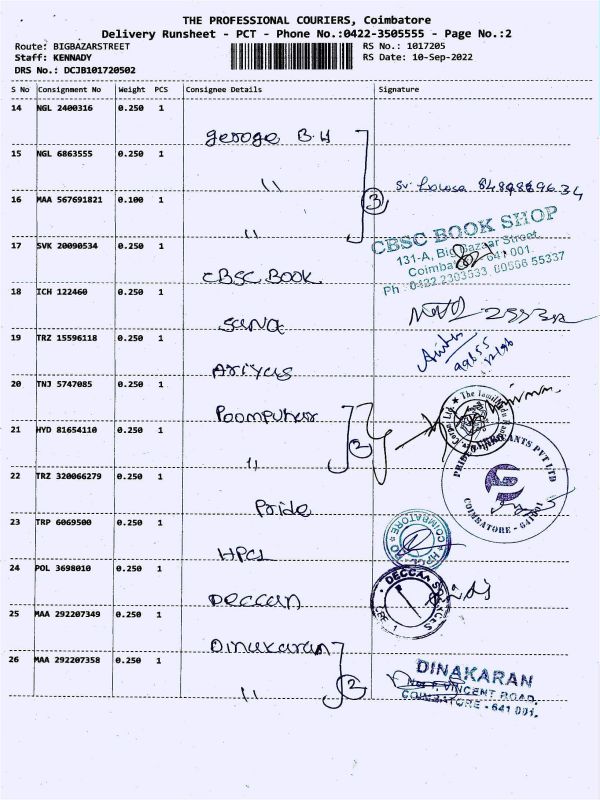 THE PROFESSIONAL COURIERS, Coimbatore
Delivery Runsheet - PCT - Phone No.:0422-3505555 - Page No.:2
Route: BIGBAZARSTREET RS No.: 1017205
Staff: KENNADY RS Date: 10-Sep-2022
DRS No.: DCJB101720502
S No Consignment No Weight PCS Consignee Details Signature
14 NGL 2400316 0.250 1 George B.H
15 NGL 6863555 0.250 1 "
16 MAA 567691821 0.100 1 " 3
17 SVK 20090534 0.250 1 CBSC BOOK
CBSC BOOK SHOP
131-A, Big Bazaar Street,
Coimbatore - 641 001.
Ph : 0422 2303533, 80566 55337
18 ICH 122460 0.250 1 Sana
19 TRZ 15596118 0.250 1 Ariyas
20 TNJ 5747085 0.250 1 Poompuhar
21 HYD 81654110 0.250 1 " 2
22 TRZ 320066279 0.250 1 Pride
COIMBATORE - 641001
23 TRP 6069500 0.250 1 HPCL
COIMBATORE
24 POL 3698010 0.250 1 Deccan
DECCAN
25 MAA 292207349 0.250 1 Dinakaran
26 MAA 292207358 0.250 1 " 2
DINAKARAN
VINCENT ROAD,
COIMBATORE - 641 001.